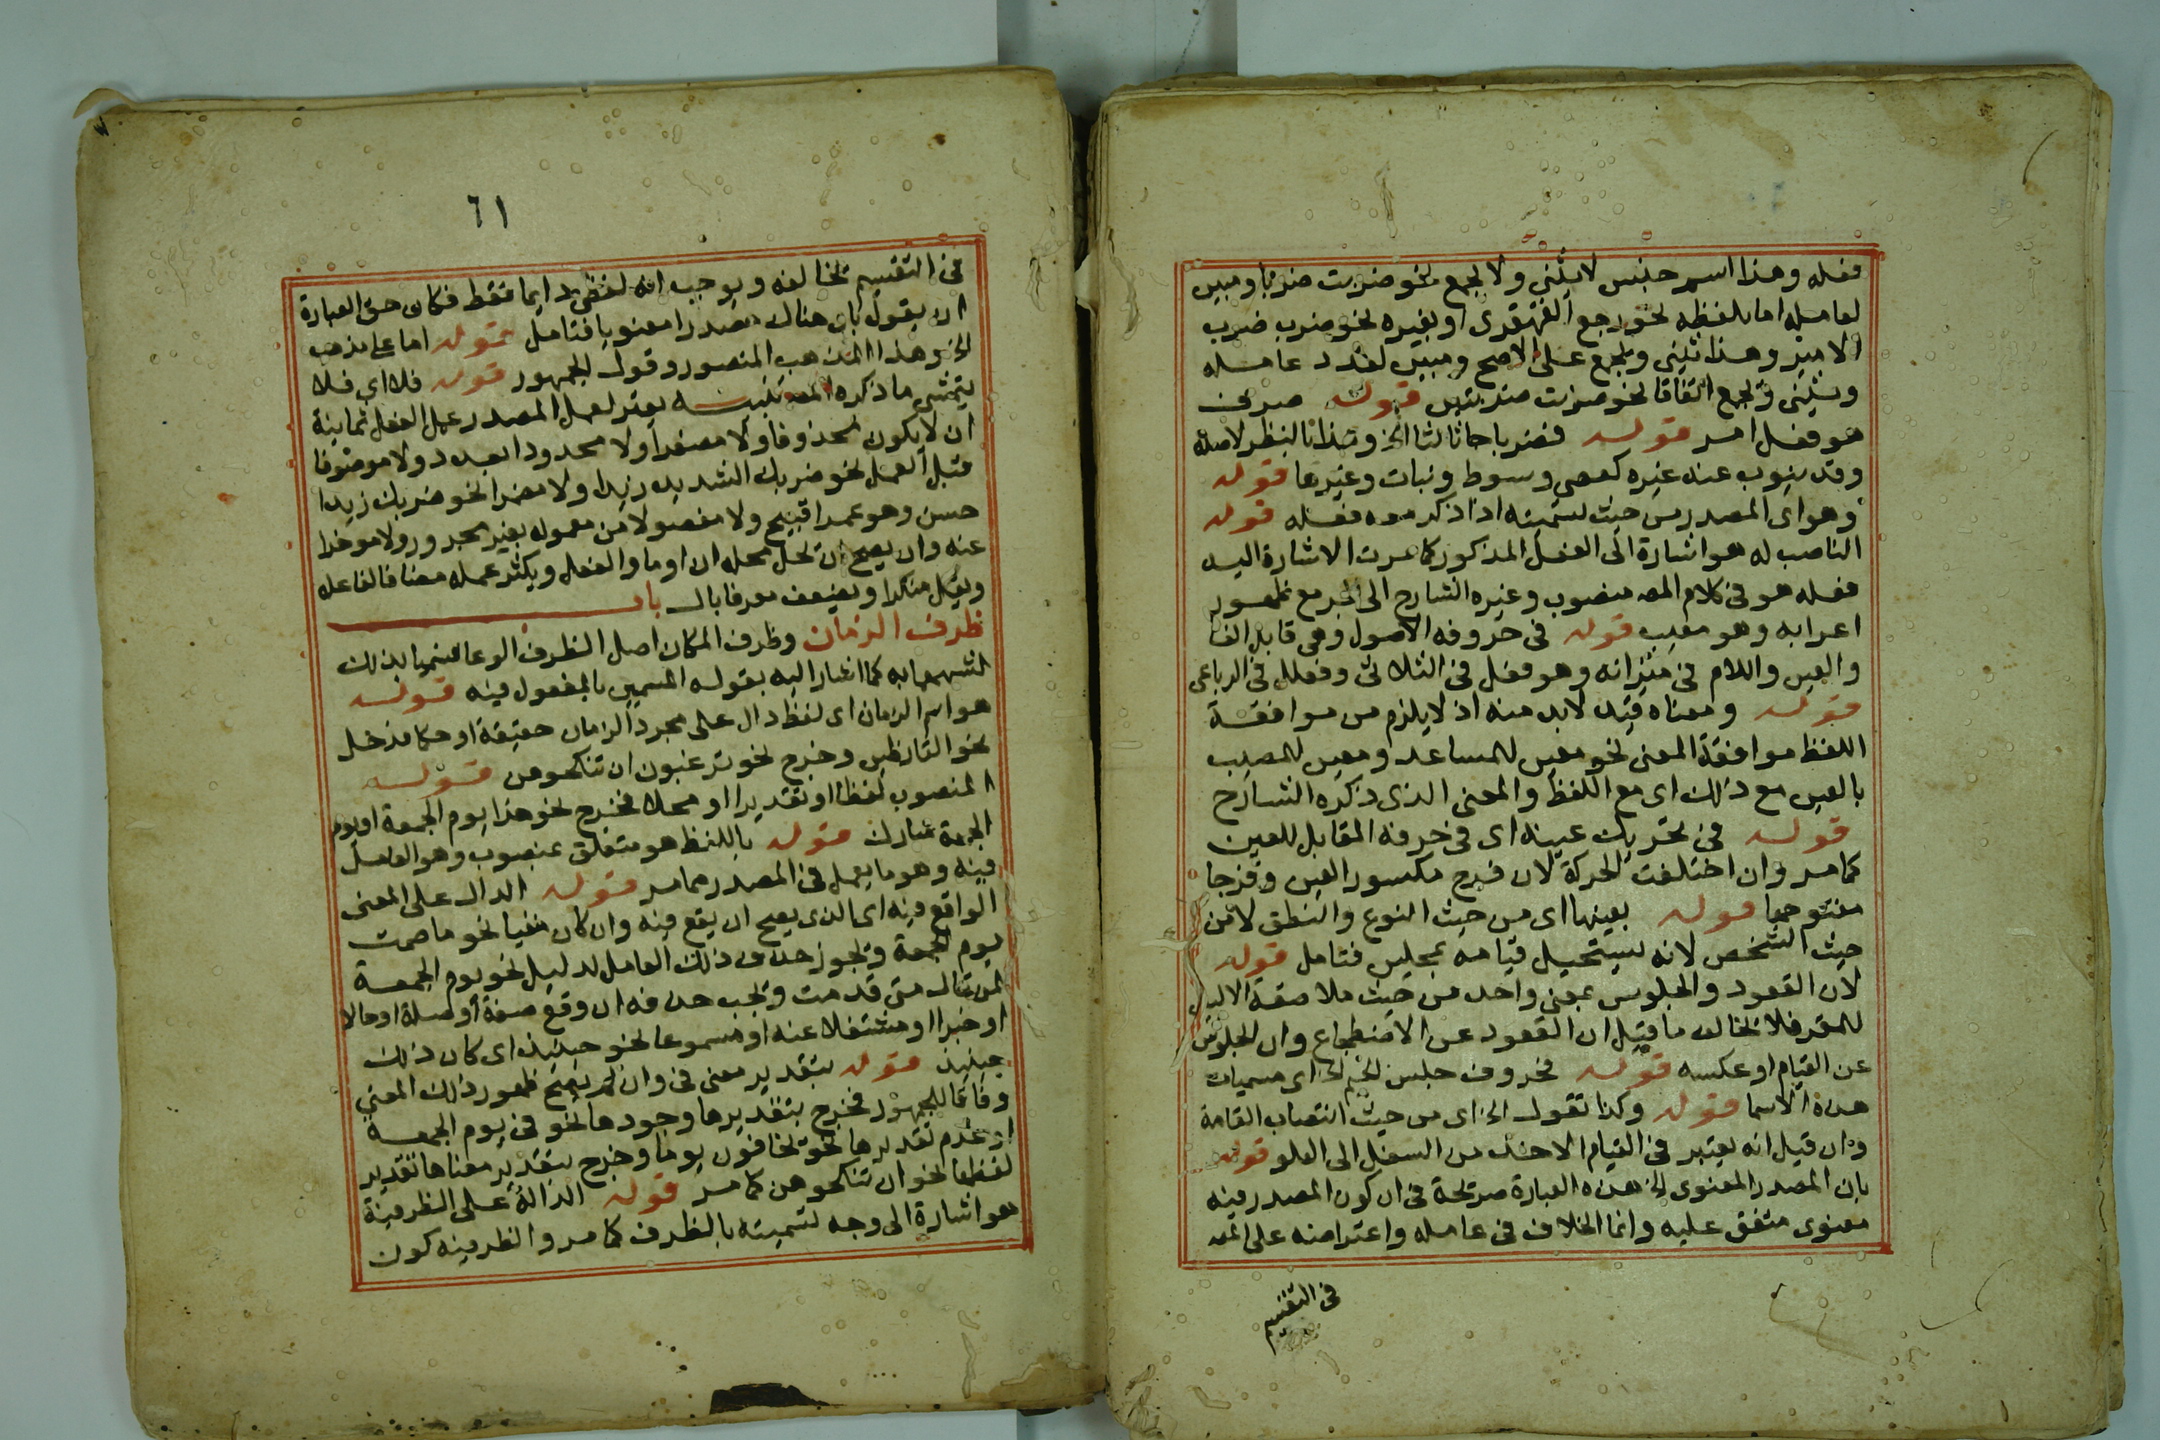 فعله وهذا اسم جنس لا يثنى ولا يجمع نحو ضربت ضربا ومبين
لعامله اما بلفظه نحو رجع القهقرى او بغيره نحو ضرب ضرب
الامير وهذا يثنى ويجمع على الاصح ومبين لعدد عامله
ويثنى ويجمع اتفاقا نحو ضربت ضربتين قوله صرف
هو فعل امر قوله فضربا جا ثالثا الخ وهذا بالنظر لاصله
وقد ينوب عنه غيره كعصى وسوط ونبات وغيرها قوله
وهو اى المصدر من حيث تسميته اذا ذكر معه فعله قوله
الناصب له هو اشارة الى الفعل المذكور كما مرت الاشارة اليه
فعله هو فى كلام المص منصوب وغيره الشارح الى الجر مع ظهور
اعرابه وهو معيب قوله فى حروفه الاصول وهى قابل الفا
والعين واللام فى ميزانه وهو فعل فى الثلاثى وفعلل فى الرباعى
قوله ومعناه قيد لابد منه اذ لا يلزم من موافقة
اللفظ موافقة المعنى نحو معين للمساعد ومعين للمصيب
بالعين مع ذلك اى مع اللفظ والمعنى الذى ذكره الشارح
قوله فى تحريك عينه اى فى حرفه المقابل للعين
كما مر وان اختلفت الحركة لان فرح مكسور العين وفرحا
مفتوحها قوله بعينها اى من حيث النوع والنطق لا من
حيث الشخص لانه يستحيل قيامه بمحلين فتامل قوله
لان القعود والجلوس بمعنى واحد من حيث ملاصقة الاليين
للمقر فلا يخالف ما قيل ان القعود عن الاضطجاع وان الجلوس
عن القيام او عكسه قوله فحروف جلس الخ اى مسميات
هذه الاسما قوله وكذا تقول الخ اى من حيث انتصاب القامة
وان قيل انه يعتبر فى القيام الاخذ من السفل الى العلو قوله
بان المصدر المعنوى الخ هذه العبارة صريحة فى ان كون المصدر فيه
معنوى متفق عليه وانما الخلاف فى عامله واعتراضه على المص
فى التقسيم
٦١
فى التقسيم يخالفه ويوجب انه لفظى دايما فقط فكان حق العبارة
ان يقول بان هناك مصدرا معنويا فتامل قوله اما على مذهب
الخ وهذا المذهب المنصور وقول الجمهور قوله فلا اى فلا
يتمشى ما ذكره المص تنبيه يعتبر لعمل المصدر عمل الفعل ثمانية
ان لا يكون محذوفا ولا مصغرا ولا محدودا بعدد ولا موصوفا
قبل العمل نحو ضربك الشديد زيدا ولا مضمرا نحو ضربك زيدا
حسن وهو عمرا قبيح ولا مفصولا من معموله بغير مجرور ولا موخرا
عنه وان يصح ان تحل محله ان او ما والفعل ويكثر عمله مضافا لفاعله
ويقل منكرا ويضعف معرفا بال باب
ظرف الزمان وظرف المكان اصل الظرف الوعا فسميا بذلك
لشبههما به كما اشار اليه بقوله المسمين بالمفعول فيه قوله
هو اسم الزمان اى لفظ دال على مجرد الزمان حقيقة او حكما فدخل
نحو القارظين وخرج نحو ترغبون ان تنكحوهن قوله
المنصوب لفظا او تقديرا او محلا فخرج نحو هذا يوم الجمعة او يوم
الجمعة مبارك قوله باللفظ هو متعلق بمنصوب وهو العامل
فيه وهو ما يعمل فى المصدر مما مر قوله الدال على المعنى
الواقع فيه اى الذى يصح ان يقع فيه وان كان منفيا نحو ما صمت
يوم الجمعة ويجوز حذف ذلك العامل لدليل نحو يوم الجمعة
لمن قال متى قدمت ويجب حذفه ان وقع صفة او صلة او حالا
او خبرا او مشتغلا عنه او مسموعا نحو حينيذ اى كان ذلك
حينيذ قوله بتقدير معنى فى وان لم يصح ظهور ذلك المعنى
وفاقا للجمهور فخرج بتقديرها وجودها نحو فى يوم الجمعة
او عدم تقديرها نحو يخافون يوما وخرج بتقدير معناها تقدير
لفظها نحو ان تنكحوهن كما مر قوله الدالة على الظرفية
هو اشارة الى وجه تسميته بالظرف كما مر والظرفية كون